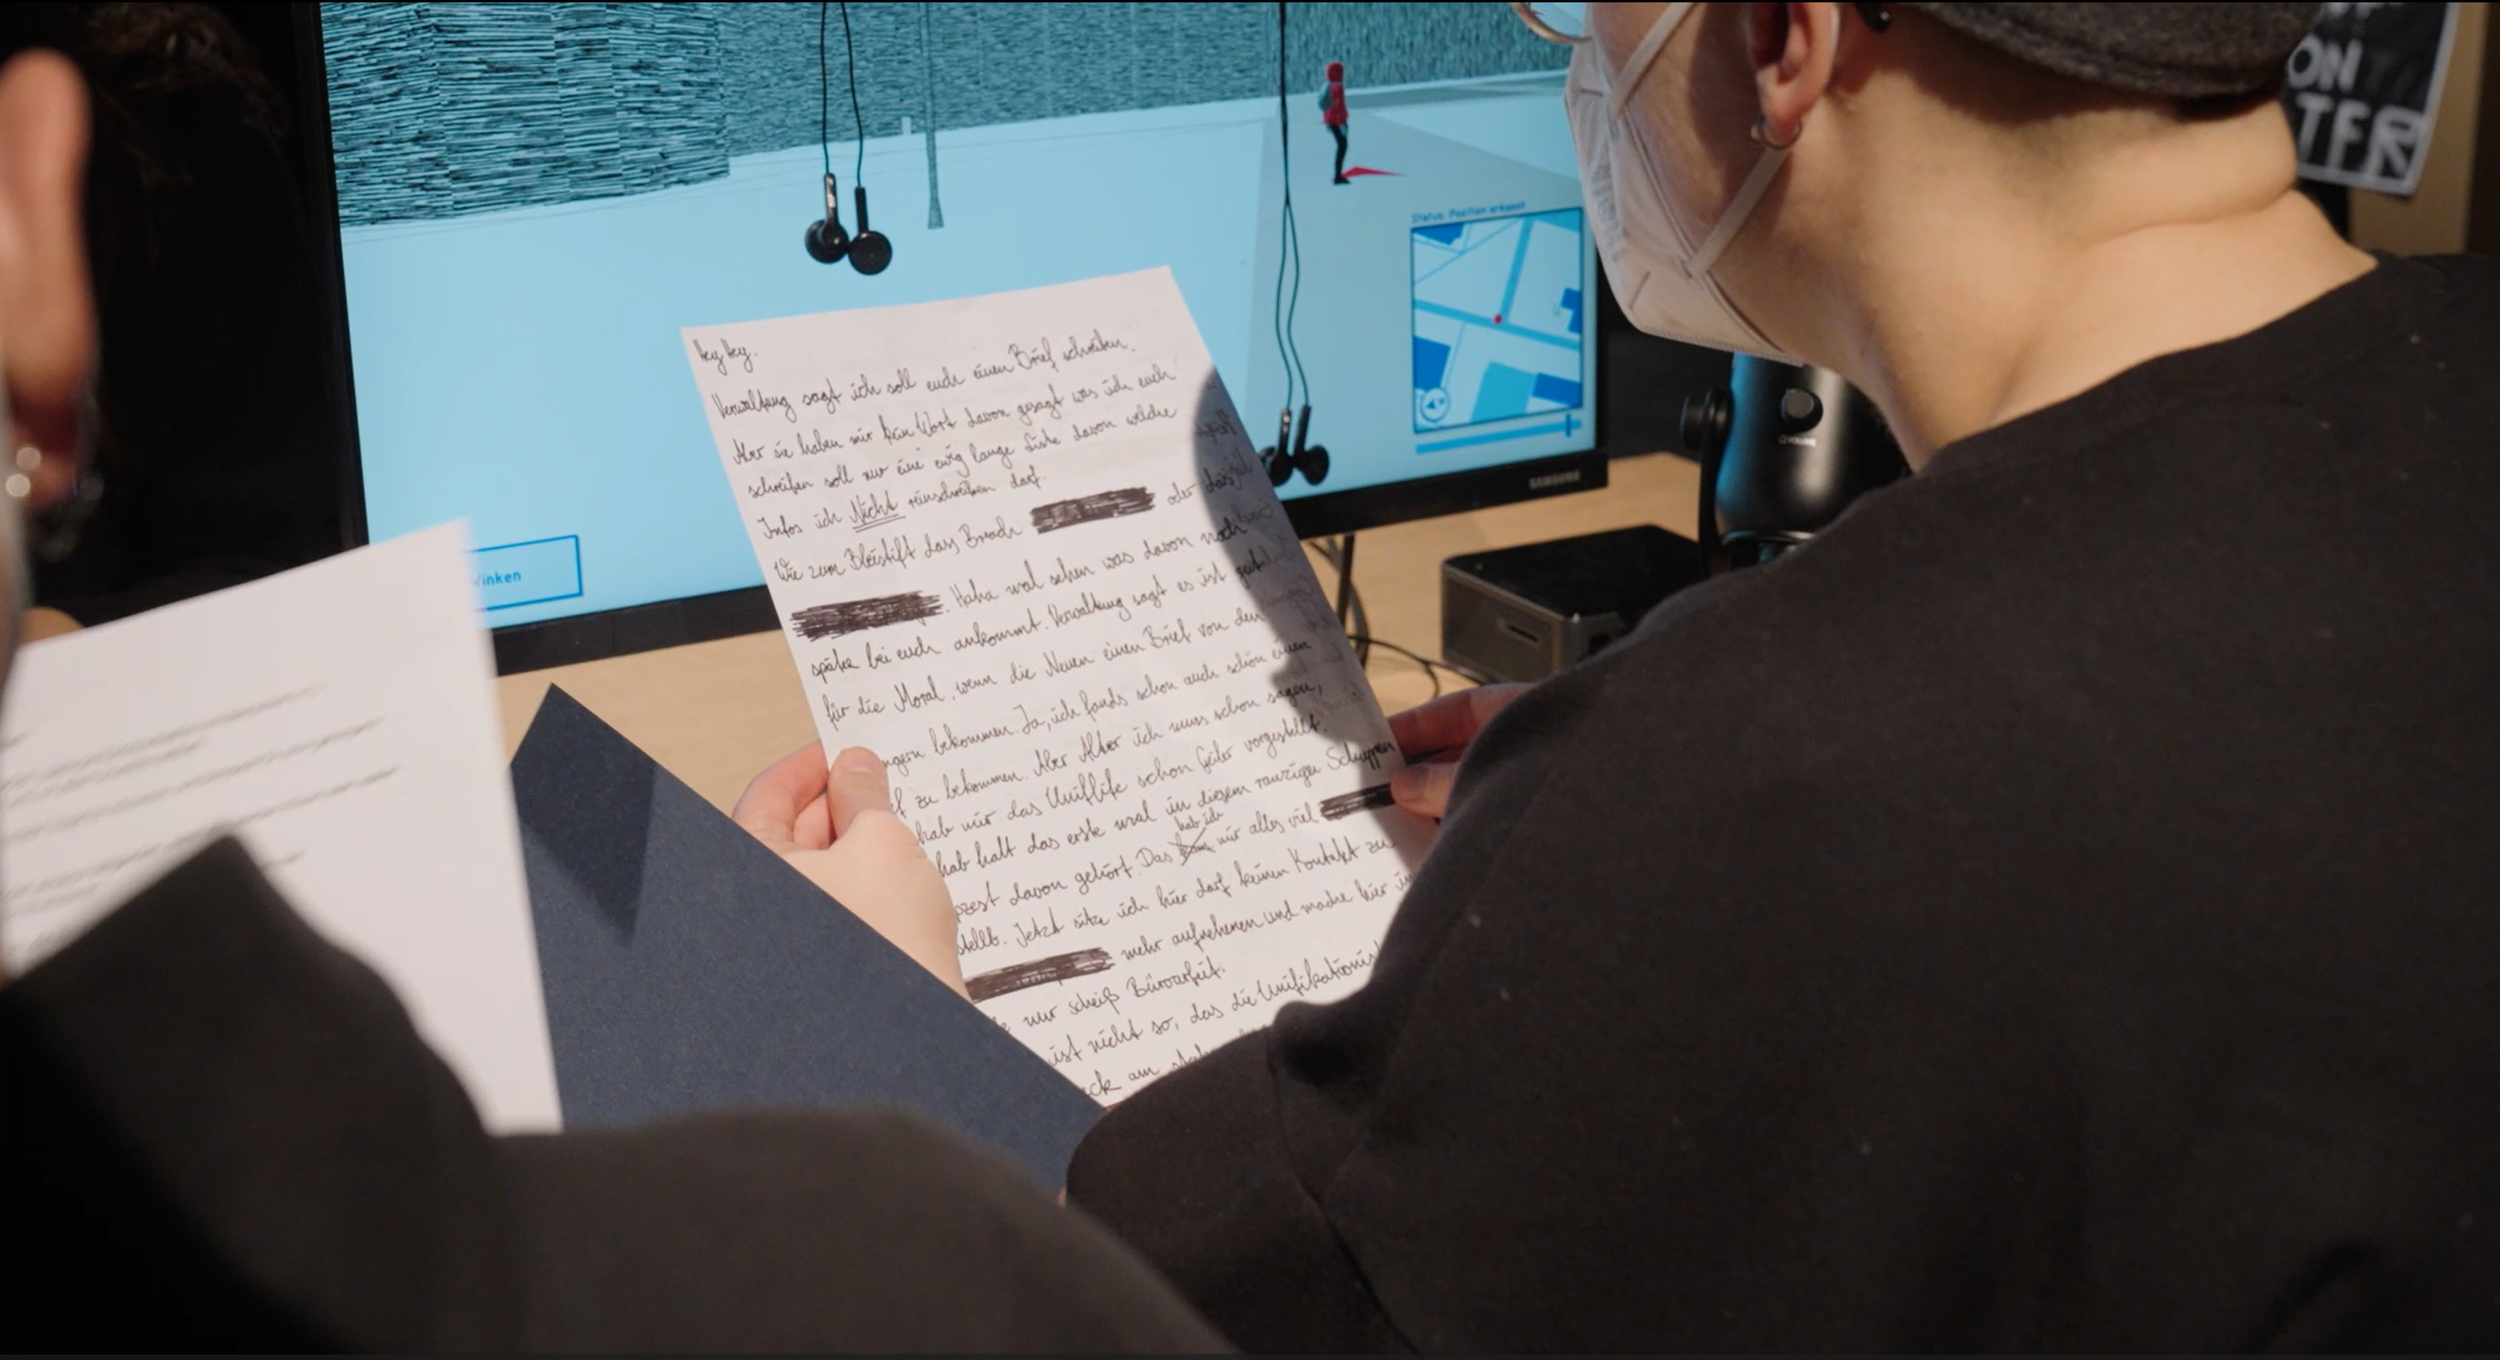 Hey Hey.
Verwaltung sagt ich soll euch einen Brief schreiben.
Aber sie haben mir kein Wort davon gesagt was ich euch
schreiben soll nur eine ewig lange Liste davon welche
Infos ich Nicht reinschreiben darf.
Wie zum Bleistift dass Brach oder das
. Haha mal sehen was davon noch
später bei euch ankommt. Verwaltung sagt es ist gut
für die Moral, wenn die Neuen einen Brief von den
ngern bekommen. Ja, ich fands schon auch schön einen
f zu bekommen. Aber Alter ich muss schon sagen,
hab mir das Uniflife schon Geiler vorgestellt.
hab halt das erste mal in diesem ranzigen Schuppen
pzest davon gehört. Das hab ich mir alles viel
stellt. Jetzt sitze ich hier darf keinen Kontakt zu
mehr aufnehmen und mache hier in
e nur scheiß Büroarbeit.
ist nicht so, das die Unifikationist
ck am
Status: Position erkannt
Winken
SAMSUNG
VOLUME
ON
TER